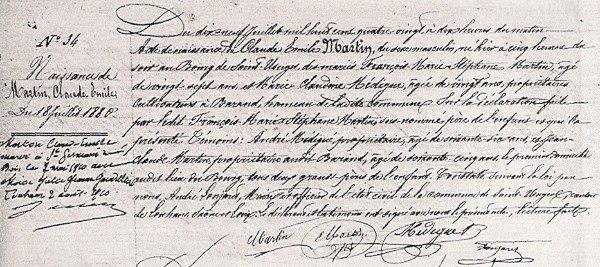 No 34
Naissance de
Martin, Claude Emile
Du 18 Juillet 1880.
Du dix neuf Juillet mil huit cent quatre vingt à dix heures du matin
Acte de naissance de Claude Emile Martin, du sexe masculin, né hier à cinq heures du
soir au Bourg de Saint-Usuge, des mariés François Marie Stéphane Martin, âgé
de vingt sept ans, et Marie Claudine Médigue, âgée de vingt ans, propriétaires
cultivateurs à Barand hameau de la de commune. Sur la déclaration faite
par ledit François Marie Stéphane Martin sus nommé père de l'enfant
présenté. Témoins: André Médigue, propriétaire, âgé de soixante six ans, et Jean
Claude Martin, propriétaire audit Barand, âgé de soixante cinq ans, le premier domicilié
audit lieu du Bourg, tous deux grands-pères de l'enfant. Constaté suivant la loi par
nous, André, Maire et officier de l'état civil de la commune de Saint-Usuge, canton
de Louhans, Saône et Loire. Le déclarant et les témoins ont signé avec nous le présent acte, lecture faite
Martin Martin Médigue